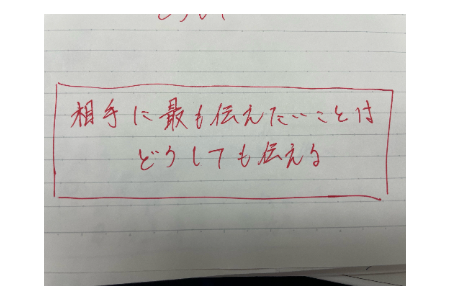 相手に最も伝えたいことは
どうしても伝える